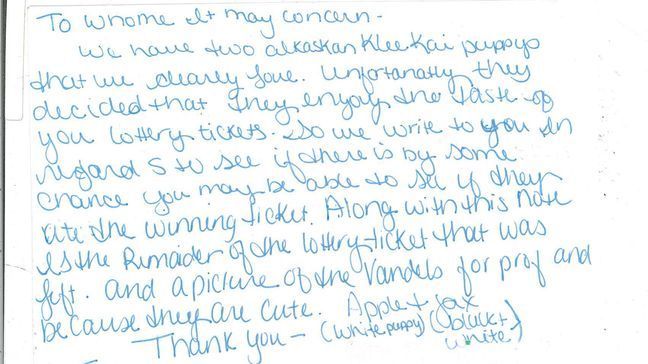 To whome it may concern.
We have two alkaskan Klee Kai puppys
that we dearly love. Unfortunatly they
decided that they enjoy the taste of
you lottery tickets. So we write to you in
regard s to see if there is by some
chance you may be able to see if they
ate the winning ticket. Along with this note
is the Rimaider of the lottery ticket that was
left. and a picture of the Vandels for prof and
because they are cute. Apple + Jax
Thank you - (white puppy) (black +
white)